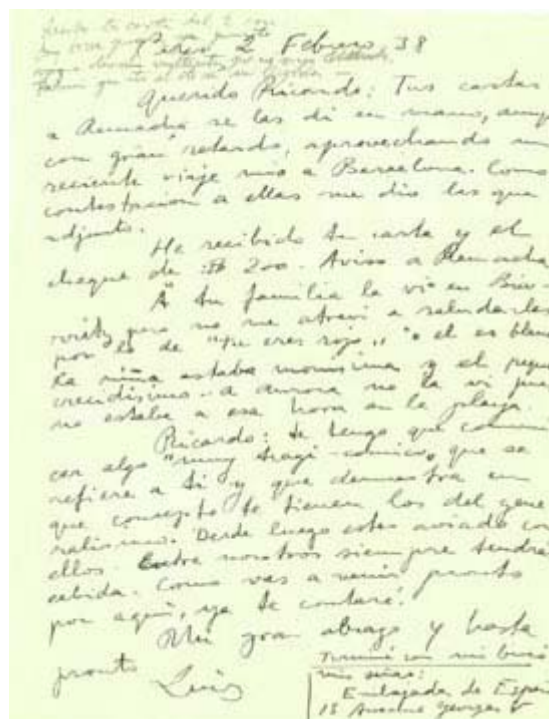 Paris 2 Febrero 38
Querido Ricardo: Tus cartas
a Remacha se las di en mano, aunq
con gran retardo, aprovechando un
reciente viaje mio a Barcelona. Como
contestación a ellas me dio las que
adjunto.
He recibido tu carta y el
cheque de $ 200. Aviso a Remacha
A tu familia la vi en Bia-
rritz pero no me atreví a saludarles
por lo de "tu eres rojo", "o el es blan
La niña estaba monisima y el pequ
crecidisimo. a aurora no la vi pues
no estaba a esa hora en la playa.
Ricardo: te tengo que comuni
car algo "muy tragi-comico, que se
refiere a ti y que demuestra en
que concepto te tienen los del gene
ralisimo. Desde luego estas aviado con
ellos. Entre nosotros siempre tendrá
cabida. Como vas a venir pronto
por aquí, ya te contaré.
Un gran abrazo y hasta
pronto
Luis
mis señas:
Embajada de Espa
15 Avenue Georges V